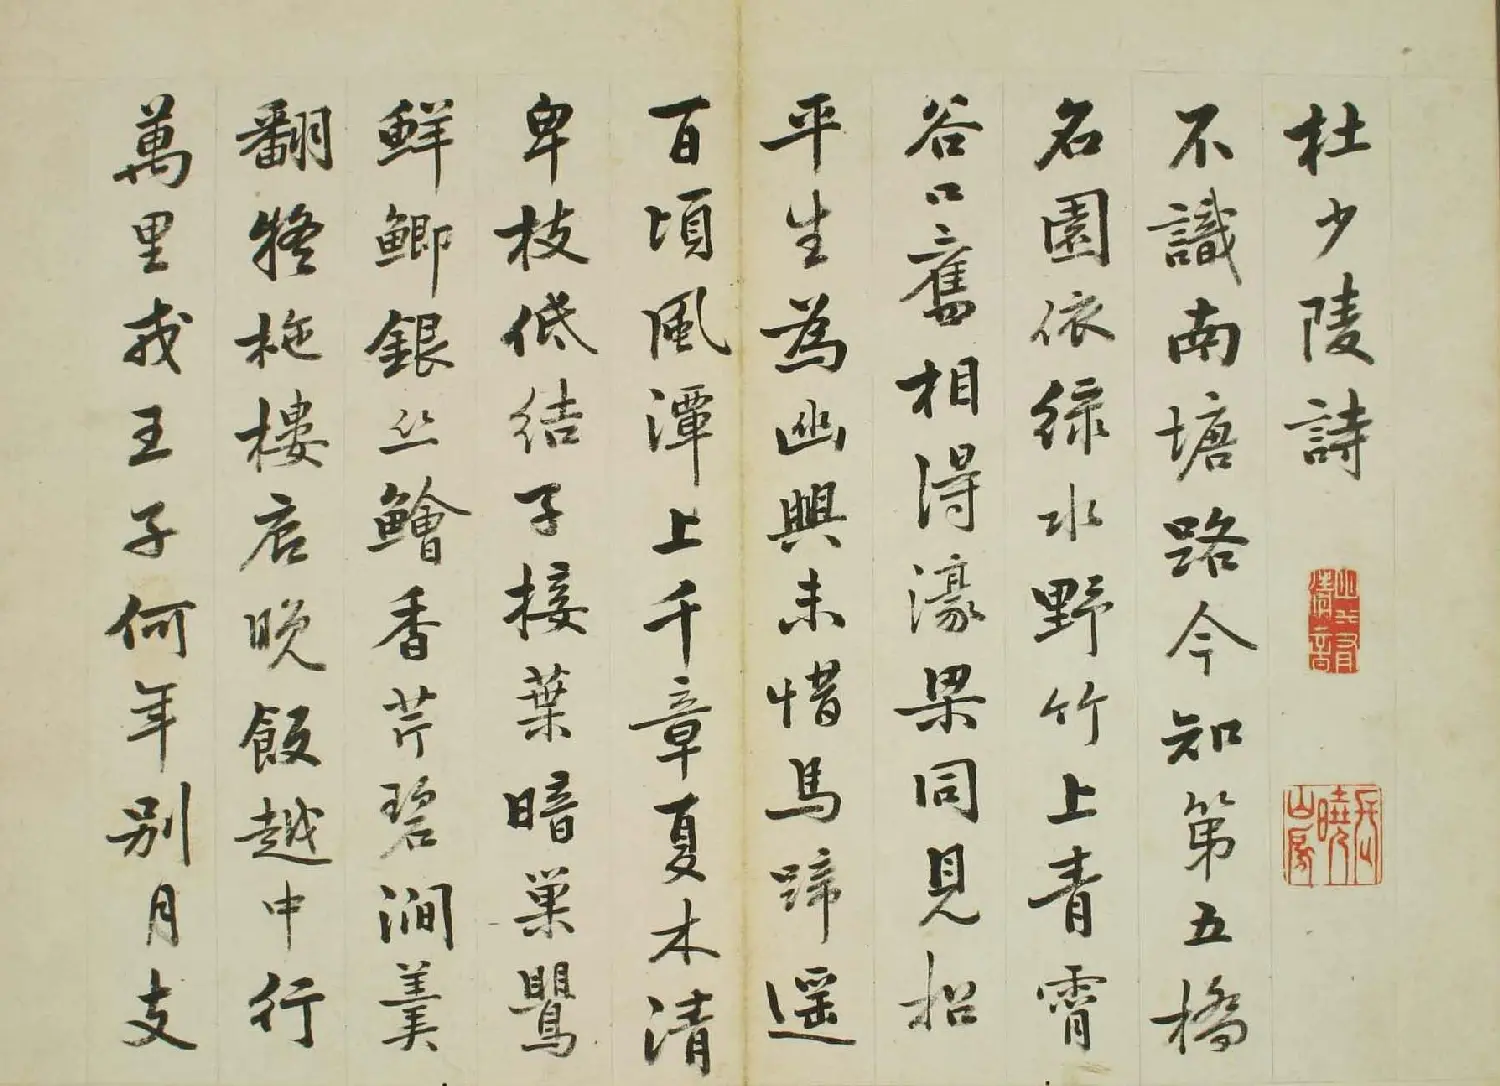 杜少陵詩
不識南塘路今知第五橋
名園依綠水野竹上青霄
谷口舊相得濠梁同見招
平生為幽興未惜馬蹄遥
百頃風潭上千章夏木清
卑枝低結子接葉暗巢鸎
鮮鯽銀丝鱠香芹碧澗羹
翻疑柂樓底晚飯越中行
萬里戎王子何年别月支